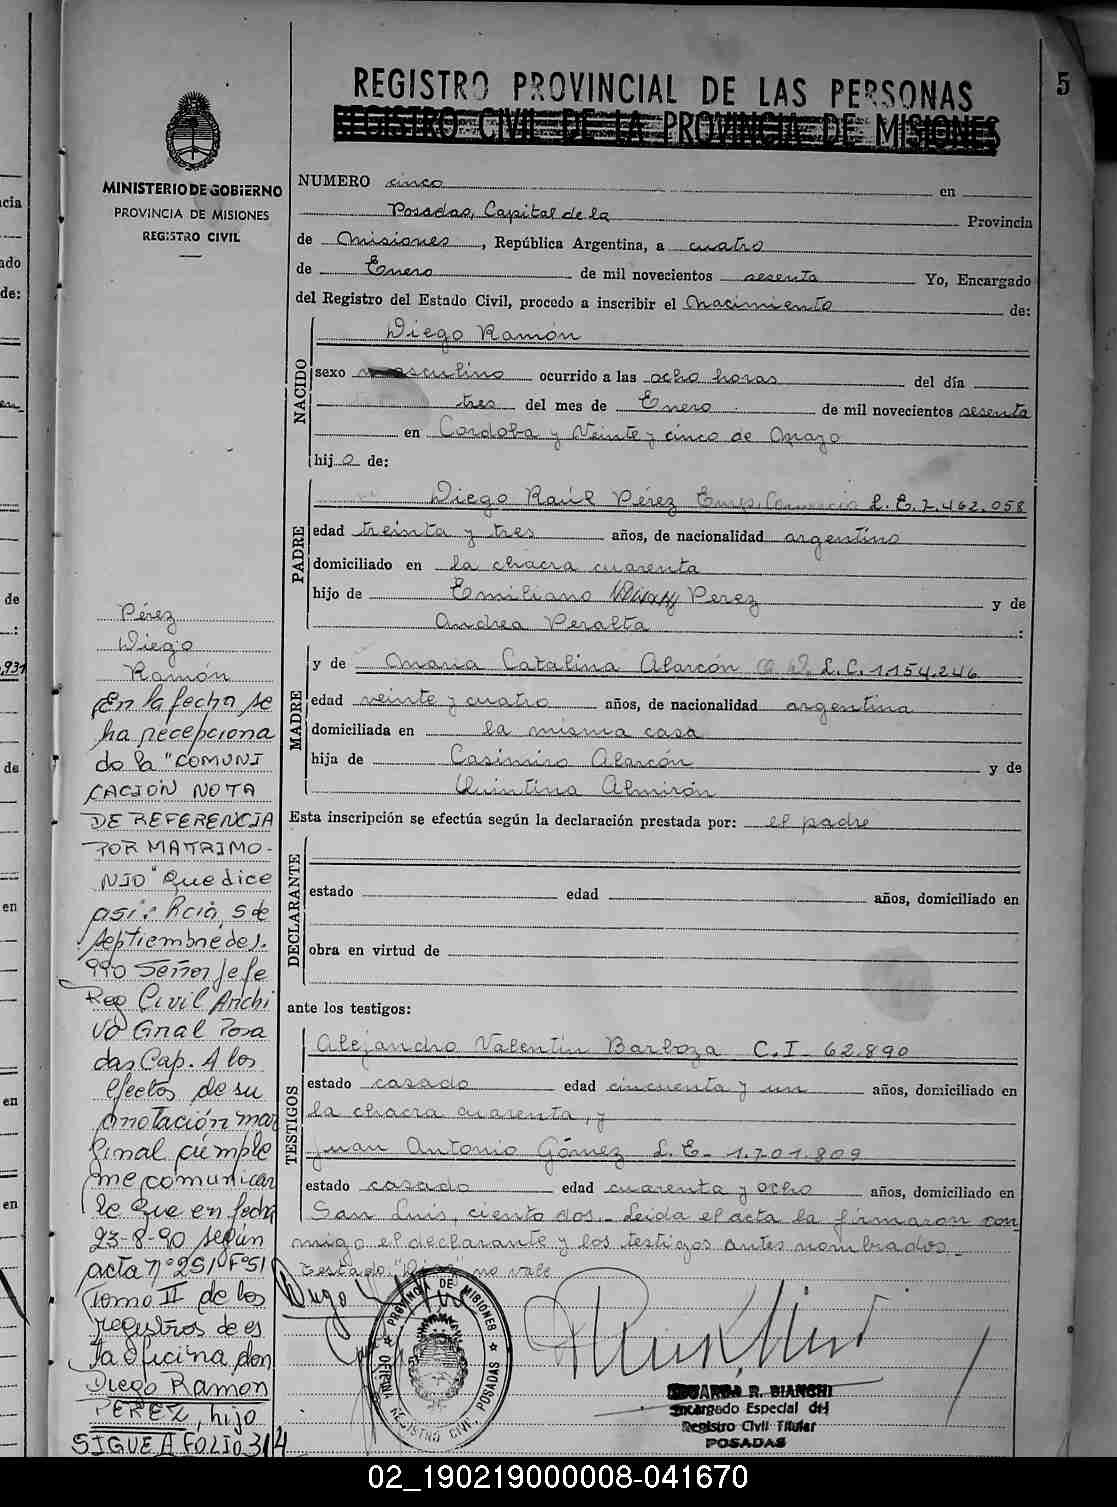 5
REGISTRO PROVINCIAL DE LAS PERSONAS
REGISTRO CIVIL DE LA PROVINCIA DE MISIONES
MINISTERIO DE GOBIERNO
PROVINCIA DE MISIONES
REGISTRO CIVIL
NUMERO cinco en
Posadas, Capital de la Provincia
de Misiones, República Argentina, a cuatro
de Enero de mil novecientos sesenta Yo, Encargado
del Registro del Estado Civil, procedo a inscribir el Nacimiento de:
NACIDO
Diego Ramón
sexo masculino ocurrido a las ocho horas del día
tres del mes de Enero de mil novecientos sesenta
en Cordoba y Veinte y cinco de Mayo
hijo de:
PADRE
Diego Raúl Pérez L.E. 7.462.058
edad treinta y tres años, de nacionalidad argentino
domiciliado en la chacra cuarenta
hijo de Emiliano Perez y de
Andrea Peralta :
MADRE
y de Maria Catalina Alarcón L.C. 1.154.246
edad veinte y cuatro años, de nacionalidad argentina
domiciliada en la misma casa
hija de Casimiro Alarcón y de
Quintina Almirón
Esta inscripción se efectúa según la declaración prestada por: el padre
DECLARANTE
estado edad años, domiciliado en
obra en virtud de
ante los testigos:
TESTIGOS
Alejandro Valentín Barboza C.I- 62.890
estado casado edad cincuenta y un años, domiciliado en
la chacra cuarenta, y
Juan Antonio Gómez L.E- 1.701.809
estado casado edad cuarenta y ocho años, domiciliado en
San Luis, ciento dos.- Leida el acta la firmaron con
migo el declarante y los testigos antes nombrados.-
testado: no vale
Pérez
Diego
Ramón
En la fecha se
ha recepciona
do la "COMUNI
CACION NOTA
DE REFERENCIA
POR MATRIMO-
NIO" que dice
asi: Rcia, 5 de
septiembre de 1.
990 Señor Jefe
Reg Civil Archi
vo Gral Posa
das Cap. A los
efectos de su
anotación mar
ginal cúmple
me comunicar
le que en fecha
23-8-90 según
acta nº 251 Fº51
Tomo II de los
registros de es
ta oficina don
Diego Ramon
PEREZ, hijo
SIGUE A FOLIO 314
PROVINCIA DE MISIONES
OFICINA REGISTRO CIVIL, POSADAS
EDUARDO R. BIANCHI
Encargado Especial del
Registro Civil Titular
POSADAS
02_190219000008-041670